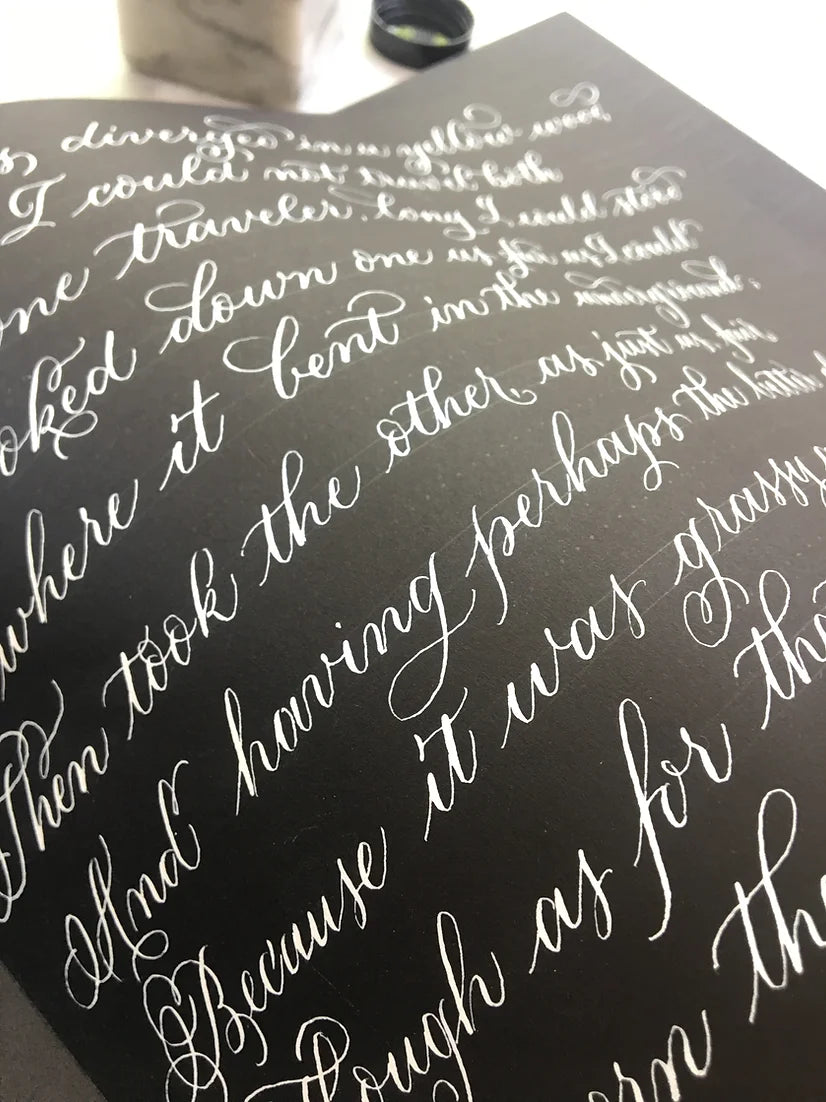 s diverged in a yellow wood
I could not travel both
one traveler, long I could stood
ooked down one as far as I could
where it bent in the underground;
Then took the other, as just as fair,
And having perhaps the better
Because it was grassy
Though as for tha
orn the